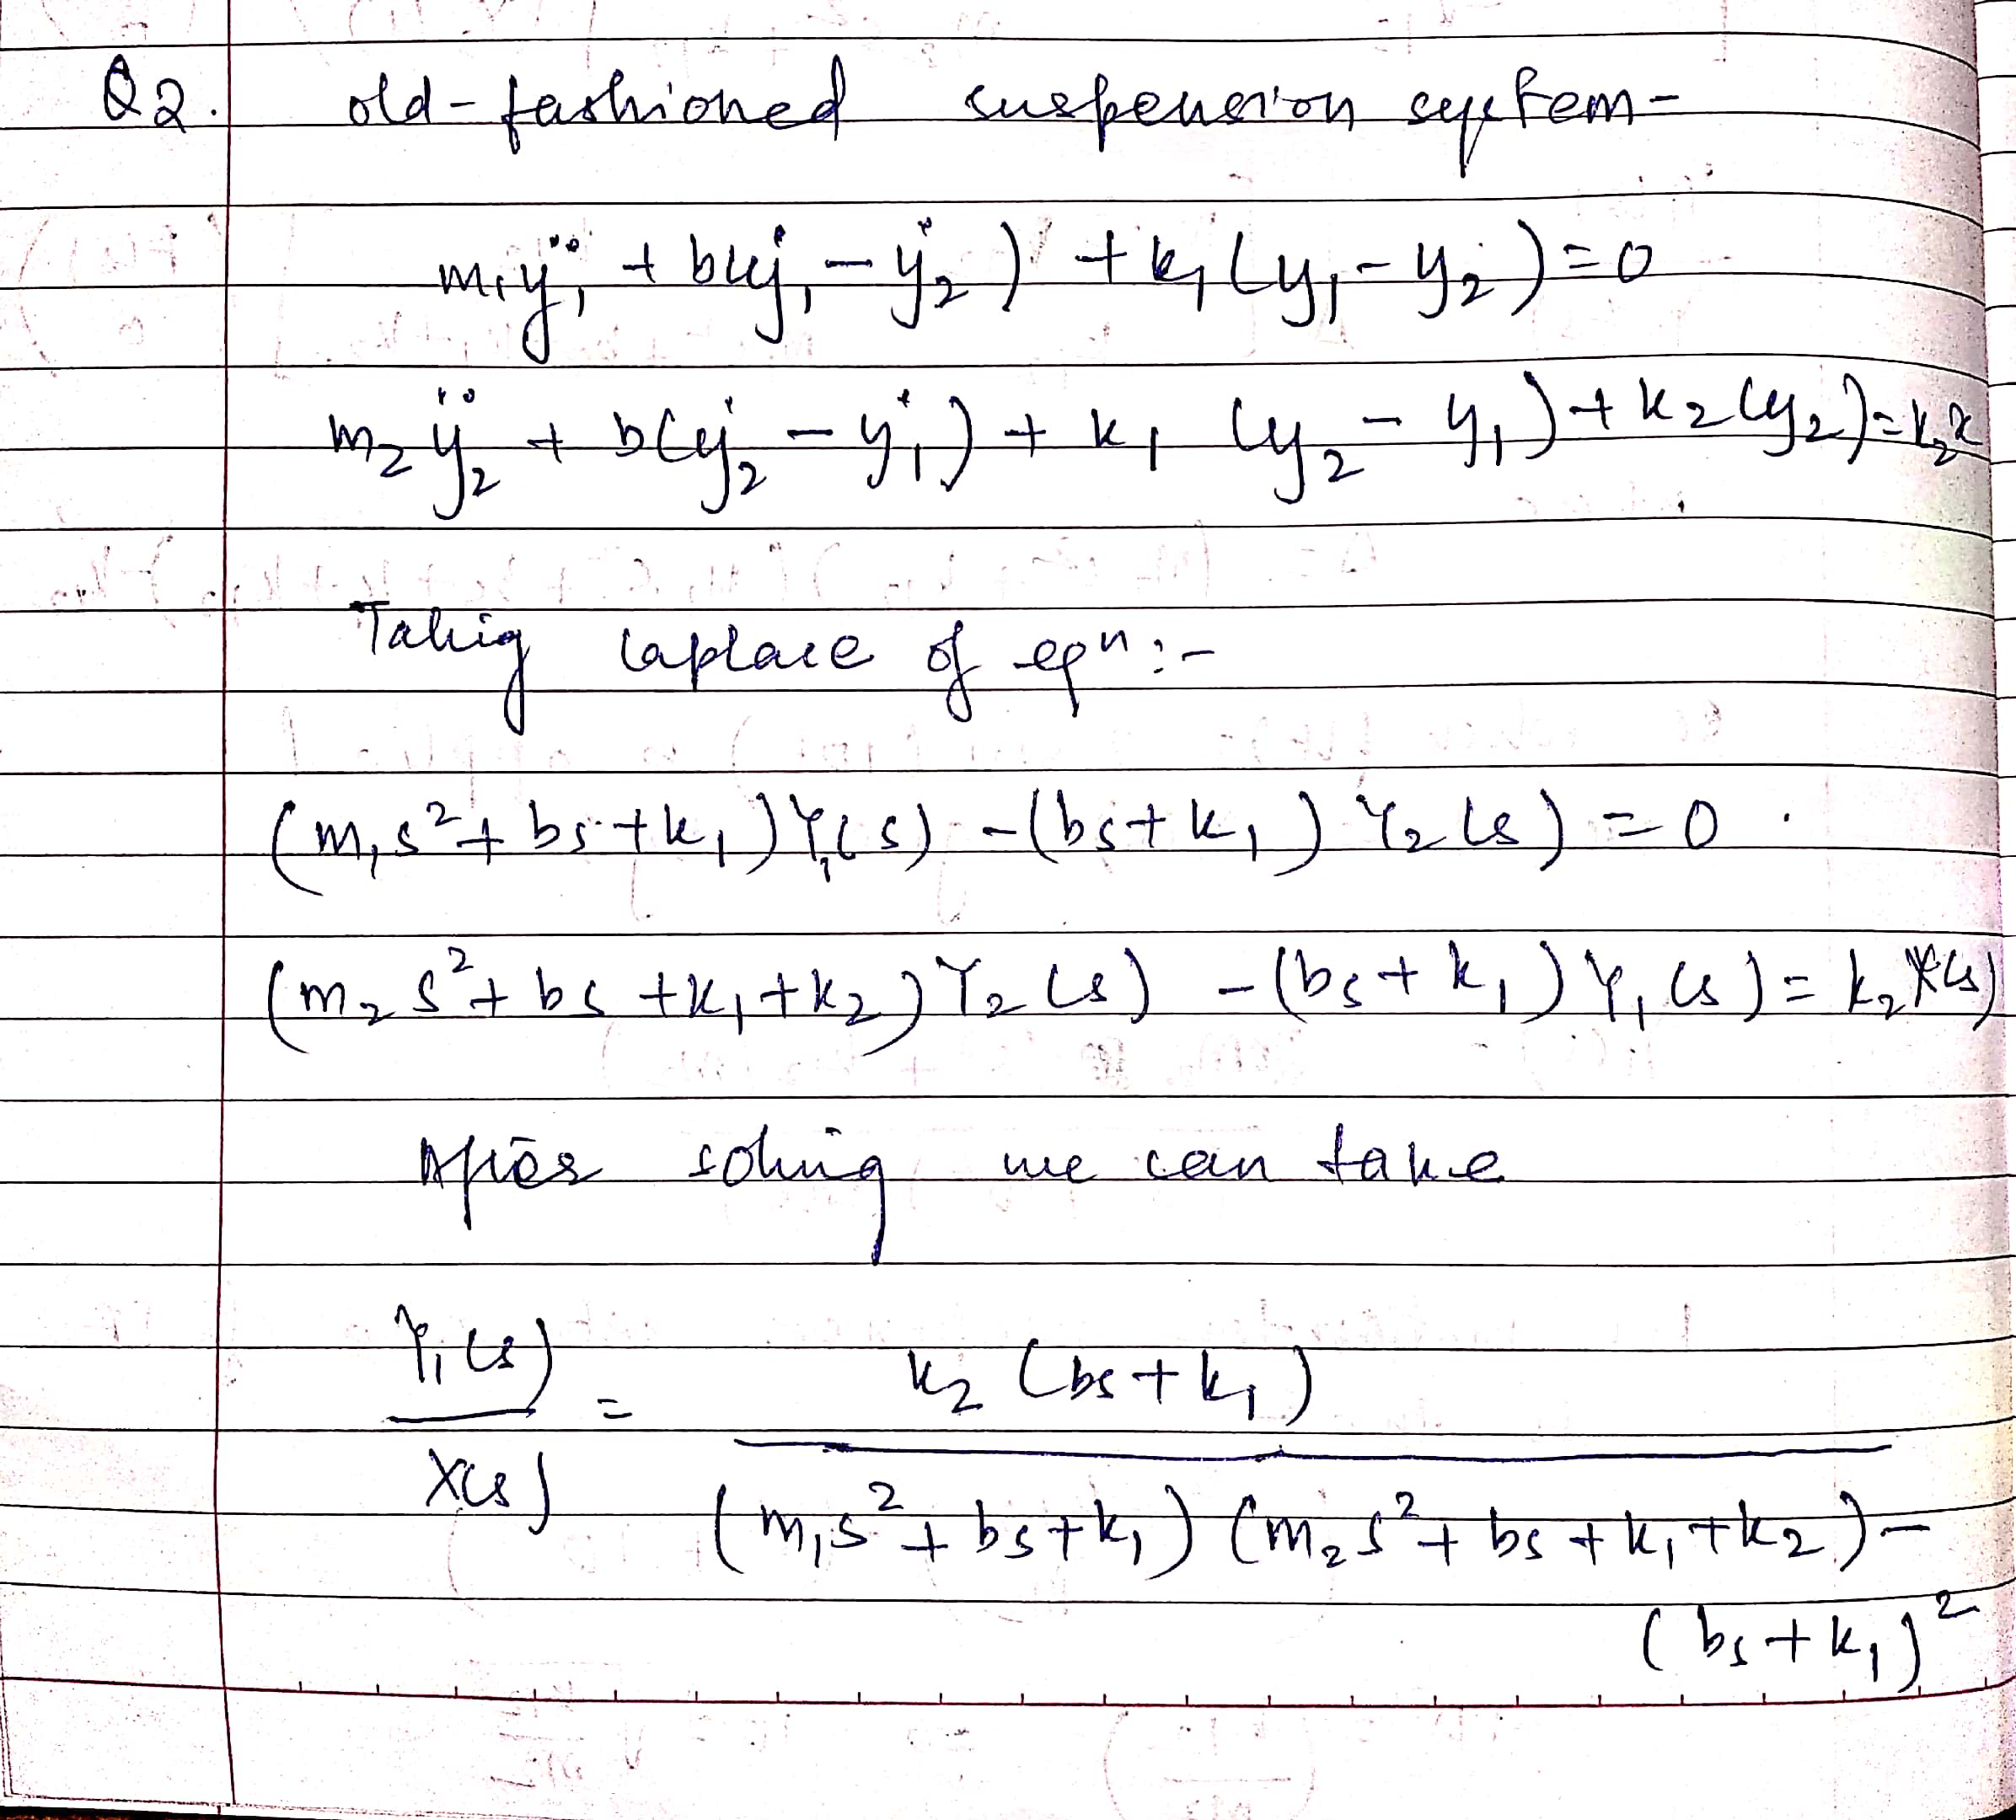 Q2. old-fashioned suspension system-
m₁ÿ₁ + b(ẏ₁ - ẏ₂) + k₁(y₁ - y₂) = 0
m₂ÿ₂ + b(ẏ₂ - ẏ₁) + k₁(y₂ - y₁) + k₂(y₂) = k₂x
Taking laplace of eqn:-
(m₁s² + bs + k₁) Y₁(s) - (bs + k₁) Y₂(s) = 0.
(m₂s² + bs + k₁ + k₂) Y₂(s) - (bs + k₁) Y₁(s) = k₂X(s)
After solving we can take
Y₁(s) = k₂(bs + k₁)
X(s) (m₁s² + bs + k₁) (m₂s² + bs + k₁ + k₂) -
(bs + k₁)²